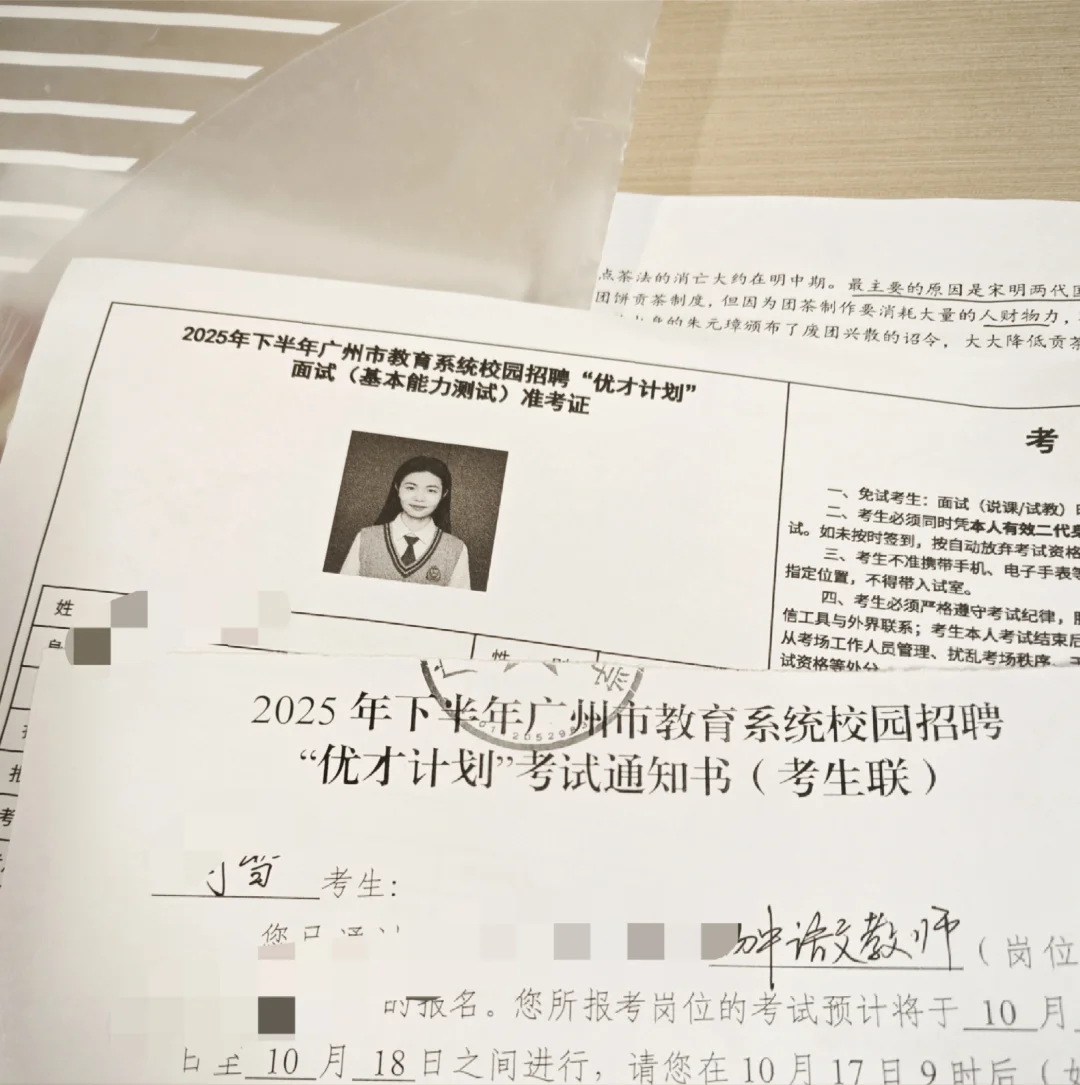 点茶法的消亡大约在明中期。最主要的原因是宋明两代
团饼贡茶制度，但因为团茶制作要消耗大量的人财物力，
的朱元璋颁布了废团兴散的诏令，大大降低贡茶
2025年下半年广州市教育系统校园招聘“优才计划”
面试（基本能力测试）准考证
姓
考
一、免试考生：面试（说课/试教）
二、考生必须同时凭本人有效二代身
试。如未按时签到，按自动放弃考试资格
三、考生不准携带手机、电子手表等
指定位置，不得带入试室。
四、考生必须严格遵守考试纪律，
信工具与外界联系；考生本人考试结束后
从考场工作人员管理、扰乱考场秩序、
试资格等处分
考
2025年下半年广州市教育系统校园招聘
“优才计划”考试通知书（考生联）
考生：
您
中语文教师（岗位
的报名。您所报考岗位的考试预计将于10月
日至10月18日之间进行，请您在10月17日9时后（如